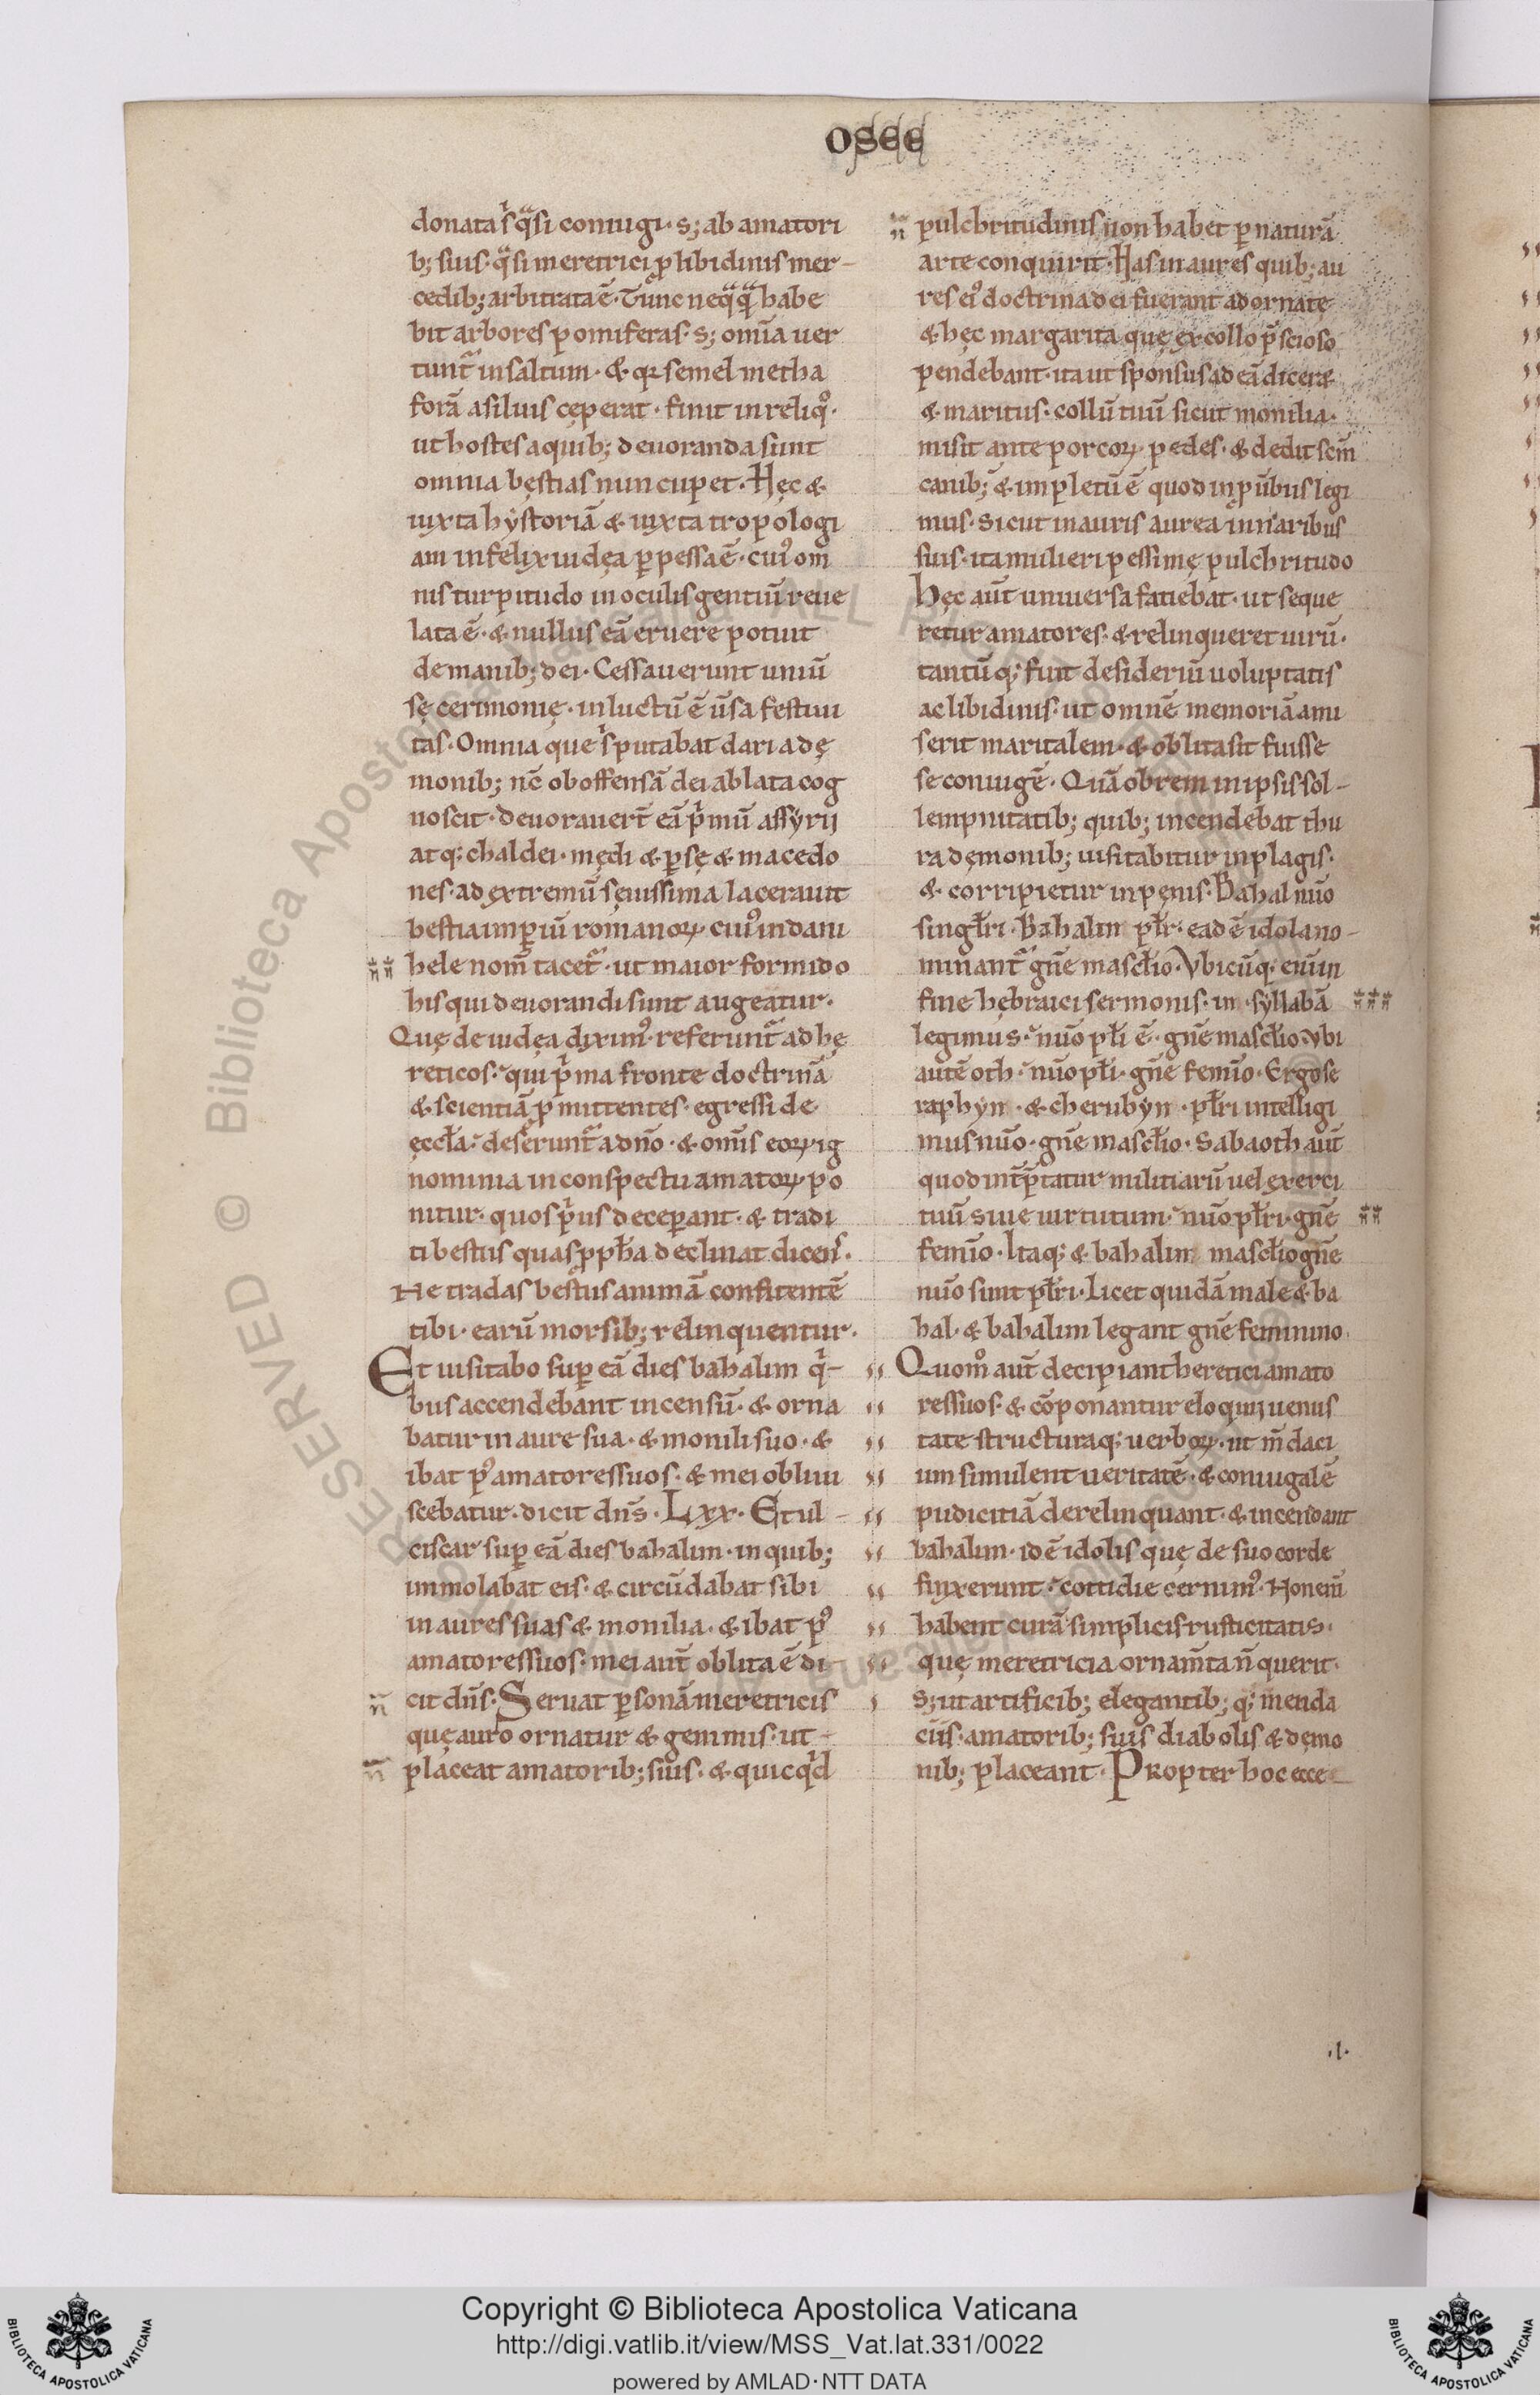 osee
donata s᷑ q̄si coniugi· s; ab amatori
b; suis· q̄si meretrici p̱ libidinis mer-
cedib; arbitrata ē· Tunc neq̄q̄ habe
bit arbores pomiferas· s; om̄a uer
tunt᷑ in saltum· & qɜ semel metha
forā a siluis cęperat· finit in reliq̊·
ut hostes a quib; deuoranda sunt
omnia bęstias nuncupet· Hęc &
iuxta hẏstoriā & iuxta tropologi
am infelix iudęa p̱pessa ē· cui᷒ om
nis turpitudo in oculis gentiū reue
lata ē· & nullus eā eruere potuit
de manib; dei· Cessauerunt uniū
sę cerimonię· in luctū ē ūsa festiui
tas· Omnia que s᷑ putabat dari a dę
monib; nc̄ ob offensā dei ablata cog
noscit· deuorauer̄t eā p̍mū assẏrij
atq; chaldei· mędi & p̱sę & macedo
nes· ad extremū sęuissima lacerauit
bestia imp̱iū romanoꝝ cui᷒ in dani
hele nom̄ tacet᷑· ut maior formido
his qui deuorandi sunt augeatur·
Quę de iudęa dixim᷒ referunt᷑ ad hę
reticos· qui p̍ma fronte doctrinā
& scientiā p̱mittentes· egressi de
ęccl̄a· deserunt᷑ a dn̄o· & om̄s eoꝝ ig
nominia in conspectu amatoꝝ po
nitur· quos p̍us decep̱ant· & tradi
ti bestiis quas ꝓph̄a declinat dicens·
Ne tradas bestiis animā confitentē
tibi· earū morsib; relinquentur·
Et uisitabo sup̱ eā dies bahalim q̍-
bus accendebant incensū· & orna
batur in aure sua· & monili suo· &
ibat p᷒ amatores suos· & mei obliui
scebatur· dicit dn̄s· Lxx· Et ul-
ciscar sup̱ eā dies bahalim· in quib;
immolabat eis· & circūdabat sibi
in aures suas & monilia· & ibat p᷒
amatores suos· mei aut̄ oblita ē di-
cit dn̄s· Seruat p̱sonā meretricis
quę auro ornatur & gemmis· ut
placeat amatorib; suis· & quicq̍d
pulchritudinis non habet p̱ naturā
arte conquirit· Has in aures quib; au
res ei᷒ doctrina dei fuerant adornate
& hęc margarita quę ex collo p̄scioso
pendebant· ita ut sponsus ad eā dicer&
& maritus· collū tuū sicut monilia·
misit ante porcoꝝ pedes· & dedit scm̄
canib; & impletū ē quod in pūbiis legi
mus· Sicut in auris aurea in naribus
suis· ita mulieri pessimę pulchritudo
hęc aut̄ uniuersa fatiebat· ut seque
retur amatores· & relinqueret uirū·
tantūq; fuit desideriū uoluptatis
ac libidinis· ut omnē memoriā ami
serit maritalem· & oblita sit fuisse
se coniugē· Quā obrem in ipsis sol-
lempnitatib; quib; incendebat thu
ra dęmonib; uisitabitur in plagis·
& corripietur in pęnis· Bahal nūo
singl̄ri· Bahalim pl̄r· eadē idola no-
minant᷑ gn̄e mascl̄io· Vbicūq; enim
fine hębraici sermonis· im· sẏllabā
legimus· nūo pl̄i ē· gn̄e mascl̄io· Vbi
autē oth· nūo pl̄i· gn̄e femīo· Ergo se
raphẏn· & cherubẏn· pl̄ri intelligi
mus nūo· gn̄e mascl̄io· Sabaoth aut̄
quod int̄p̄tatur militiarū uel exerci
tuū siue uirtutum· nūo pl̄ri· gn̄e
femīo· Itaq; & bahalim mascl̄io gn̄e
nūo sunt pl̄ri· Licet quidā male & ba
hal· & bahalim legant gn̄e feminino·
Quom̊ aut̄ decipiant heretici amato
res suos· & cōponantur eloquij uenus
tate structuraq; uerboꝝ· ut m̄daci
um simulent ueritatē· & coniugalē
pudicitiā derelinquant· & incendant
bahalim· id ē idolis quę de suo corde
finxerunt· cottidie cernim᷒· Non eni᷒
habent curā simplicis rusticitatis·
quę meretricia ornam̄ta n̄ querit·
s; ut artificib; elegantib; q; menda
ciis· amatorib; suis diabolis & dęmo
nib; placeant· Propter hoc ecce
·I·
Copyright © Biblioteca Apostolica Vaticana
http://digi.vatlib.it/view/MSS_Vat.lat.331/0022
powered by AMLAD·NTT DATA